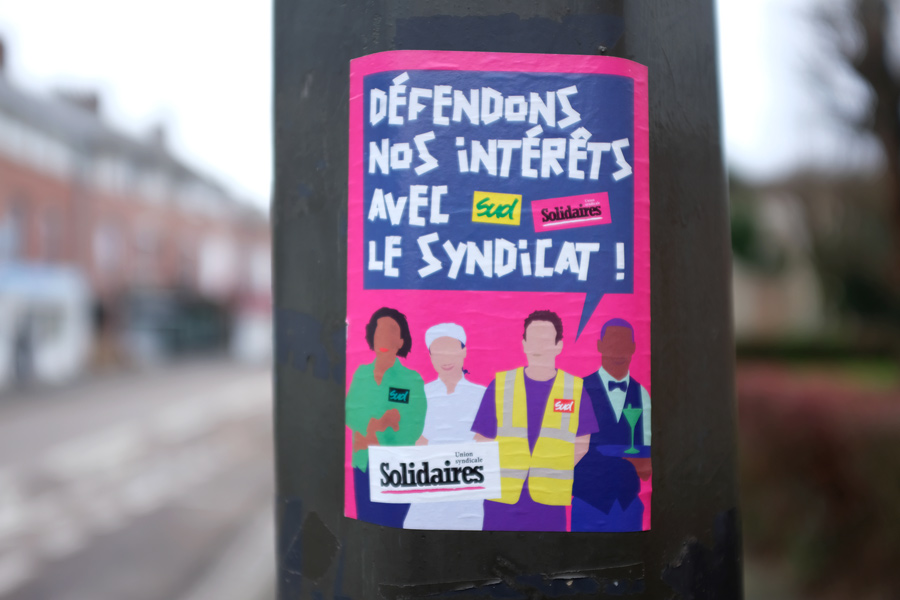 DÉFENDONS
NOS iNTÉRÊTS
AVEC Sud Solidaires
LE SYNDiCAT !
Sud
Sud
Union
syndicale
Solidaires